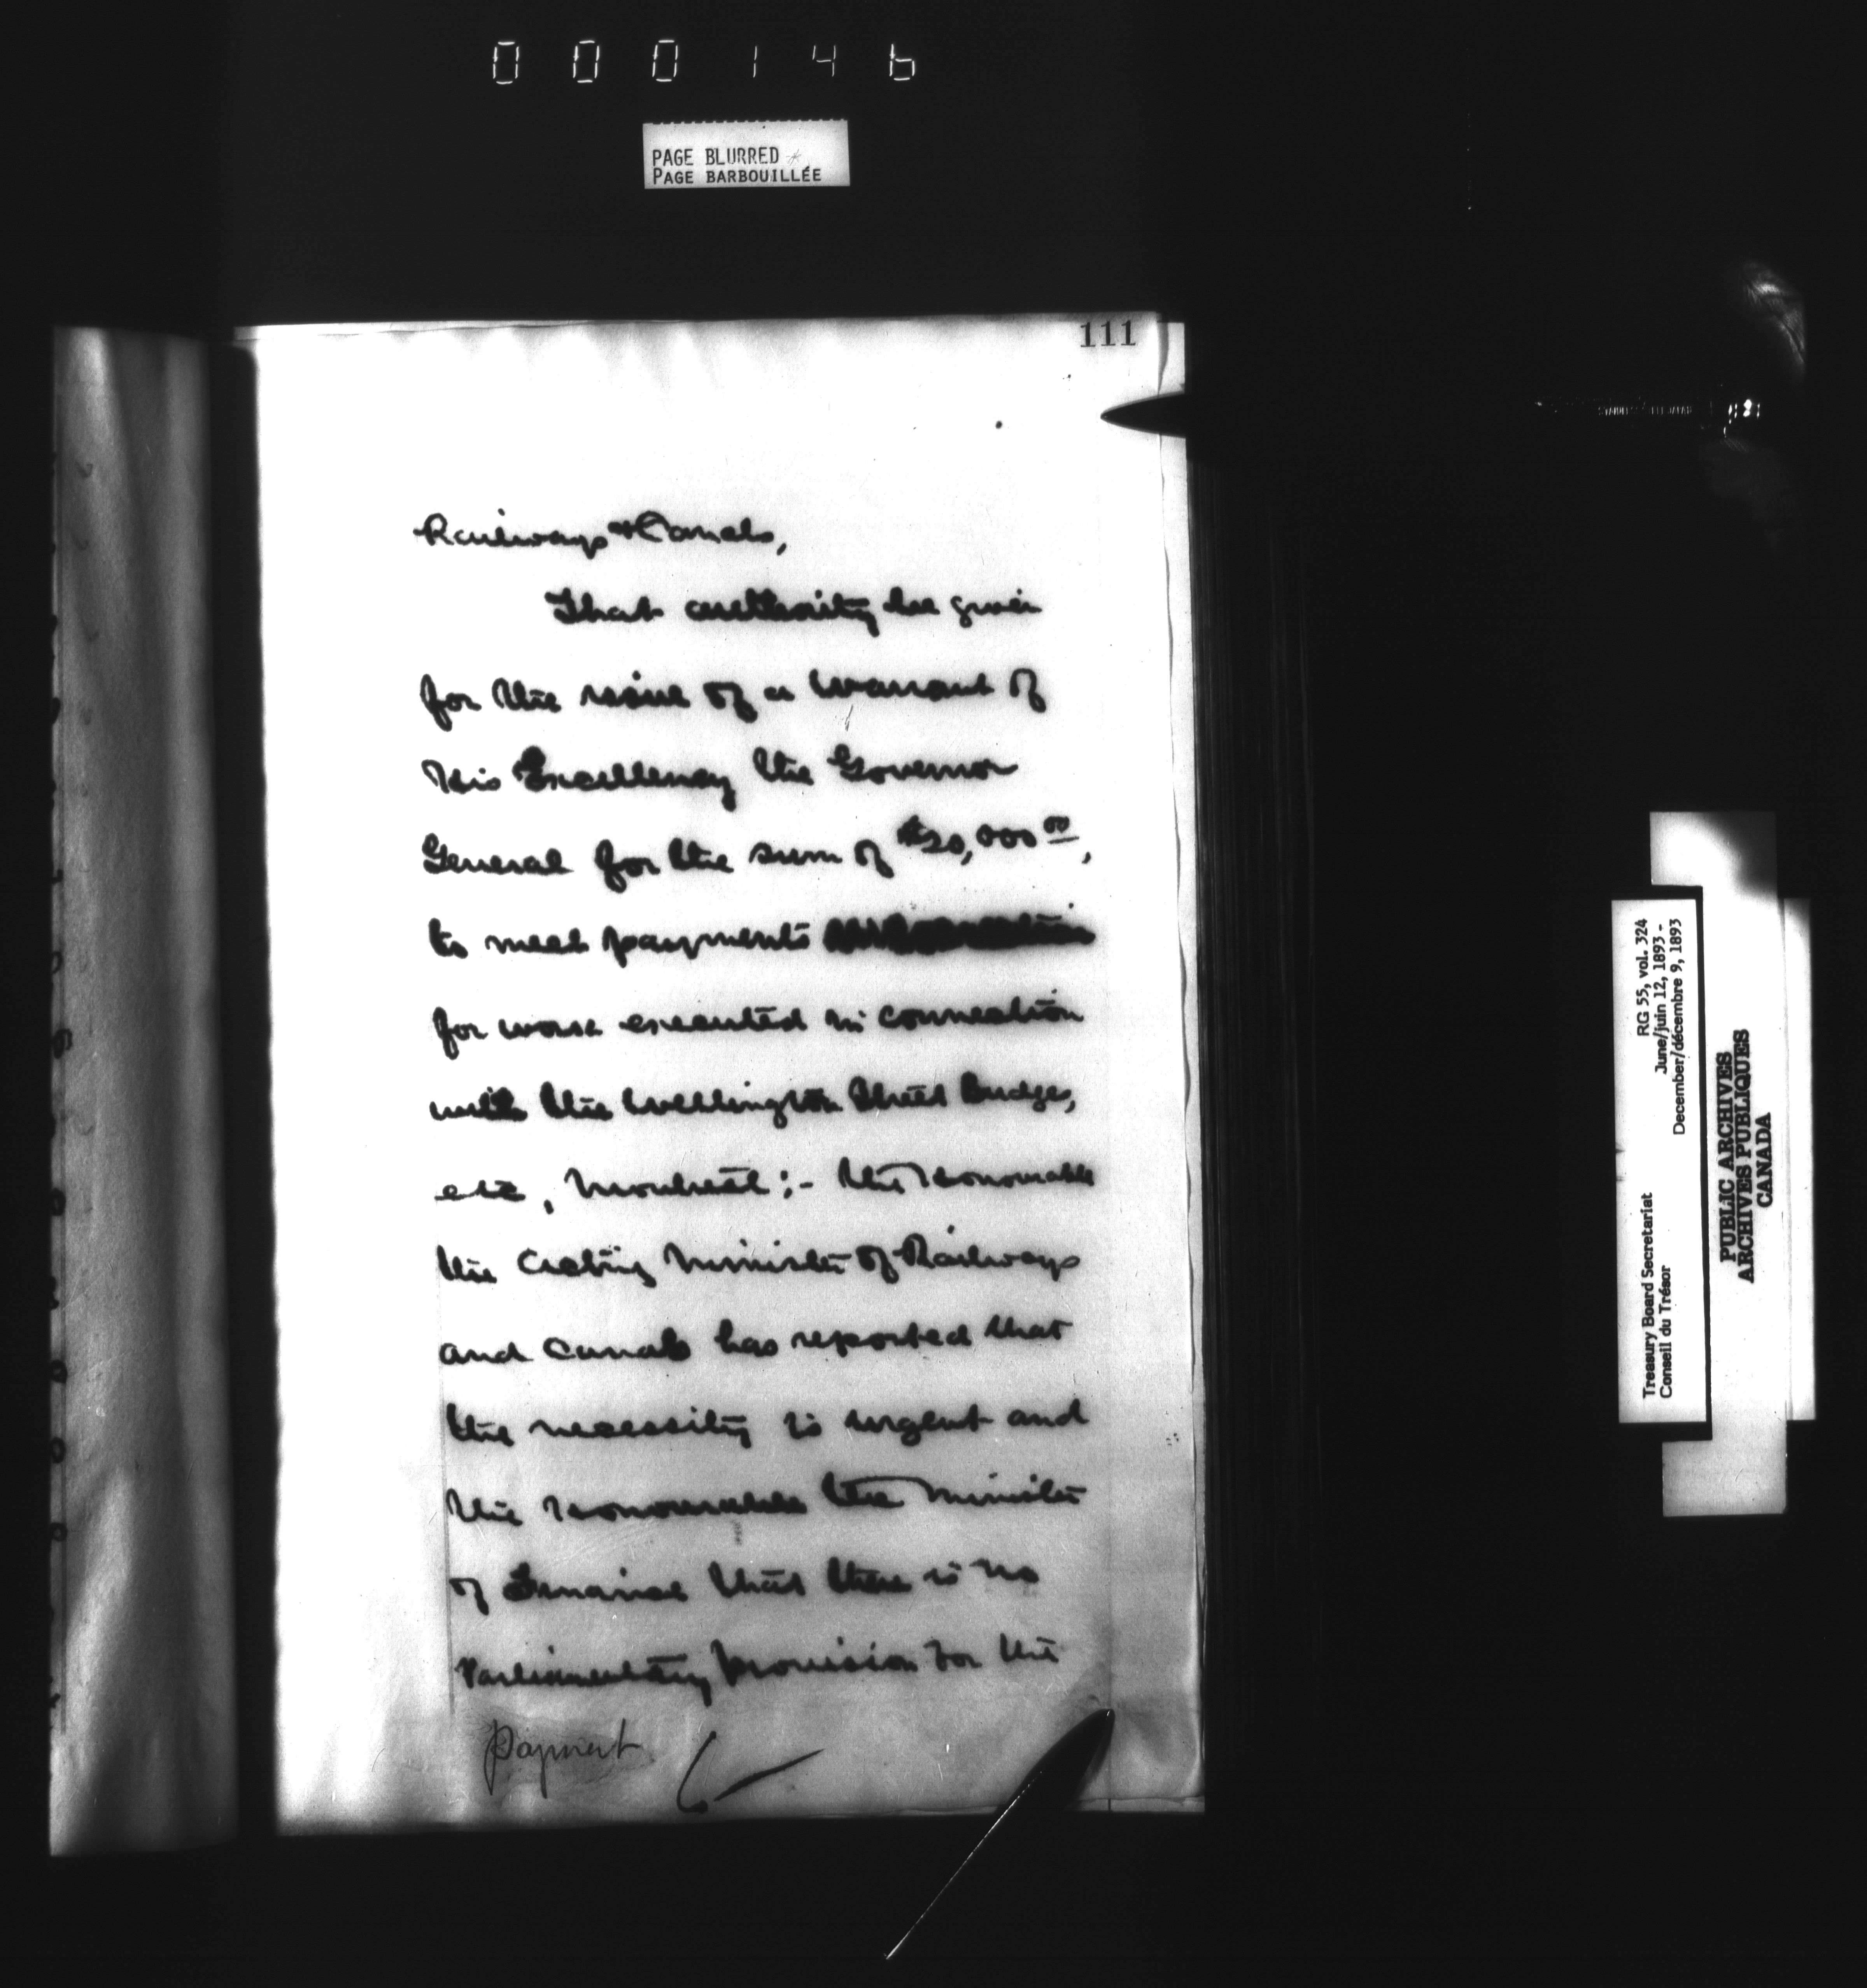 000146
PAGE BLURRED *
PAGE BARBOUILLÉE
111
Railways & Canals,
That authority be given
for the issue of a Warrant of
His Excellency the Governor
General for the sum of $20,000 00,
to meet payments
for work executed in connection
with the Wellington Street Bridge,
etc, Montreal:- the Honourable
the Acting Minister of Railways
and Canals has reported that
the necessity is urgent and
the Honourable the Minister
of Finance that there is no
Parliamentary provision for the
payment
Treasury Board Secretariat RG 55, vol. 324
Conseil du Trésor June/juin 12, 1893 -
December/décembre 9, 1893
PUBLIC ARCHIVES
ARCHIVES PUBLIQUES
CANADA